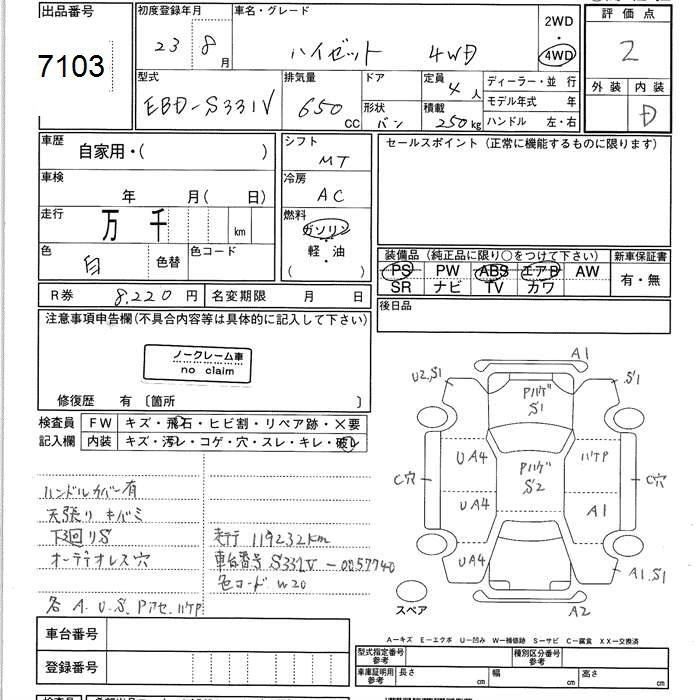 出品番号 初度登録年月 車名・グレード 2WD ・ 4WD 評価点
7103 23 8月 ハイゼット 4WD 2
型式 排気量 ドア 定員 4人 ディーラー・並行 外装 内装
EBD-S331V 650CC 形状 バン 積載 250kg モデル年式 年 D
ハンドル 左・右
車歴 自家用・( ) シフト MT セールスポイント(正常に機能するものに限ります)
車検 年 月(日) 冷房 AC
走行 万 千 km 燃料 ガソリン・軽油 ( )
色 白 色替 色コード
装備品(純正品に限り○をつけて下さい) 新車保証書
PS PW ABS エアB AW 有・無
SR ナビ TV カワ
R券 8,220円 名変期限 月 日 後日品
注意事項申告欄(不具合内容等は具体的に記入して下さい)
ノークレーム車
no claim
修復歴 有 〔箇所 〕
検査員 FW キズ・飛石・ヒビ割・リペア跡・×要
記入欄 内装 キズ・汚レ・コゲ・穴・スレ・キレ・破レ
ハンドルカバー有
天張りキバミ
下回りS
オーデオレス穴
各 A.U.S.Pアセ.ハゲP
走行 119232km
車台番号 S331V-0057740
色コード W20
A1
U2.S1 PハゲS1 S1
UA4 ハゲP
C穴 PハゲS2 C穴
UA4 A1
UA4 A1.S1
スペア A2
A−キズ E−エクボ U−凹み W−補修跡 S−サビ C−腐食 XX−交換済
車台番号
登録番号
型式指定番号 参考 種別区分番号 参考
車庫証明用 参考 長さ cm 幅 cm 高さ cm